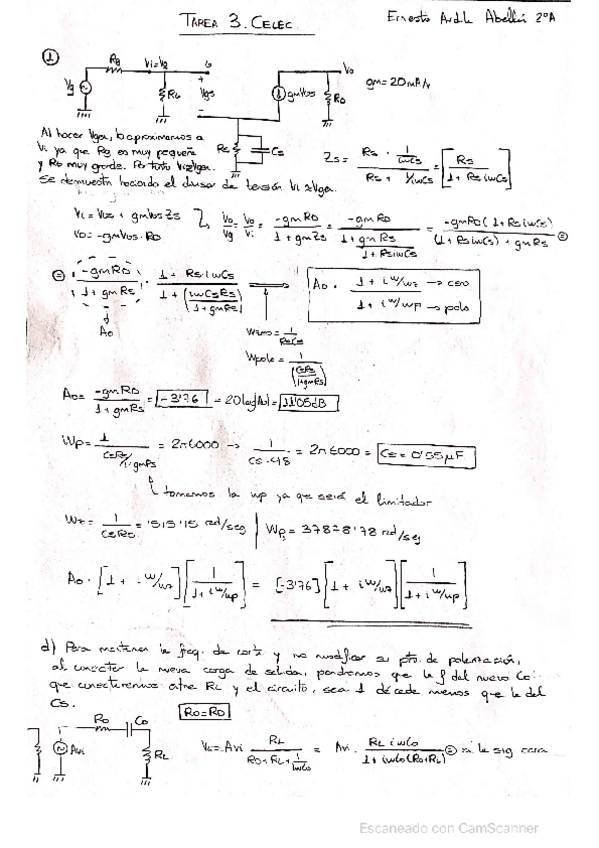 TAREA 3. CELEC
Ernesto Ardila Abellán 2ºA
①
Rg
Vi=Vg
Vg
RG
Vgs
gmVgs
Vo
RD
gm=20mA/V
RS
CS
Al hacer Vg≈, lo aproximamos a
Vi ya que Rg es muy pequeña
y RG muy grande. Por tanto Vi≈Vg.
Se demuestra haciendo el divisor de tensión Vi≈Vg.
Zs = Rs · 1/iwCs / Rs + 1/iwCs = [Rs / 1 + Rs iwCs]
Vi = VGS + gmVGS Zs
Vo = -gmVGS · RD
Vo/Vg = Vo/Vi = -gmRD / 1 + gmZs = -gmRD / 1 + gmRs / 1 + RsiwCs = -gmRD(1 + RsiwCs) / (1 + RsiwCs) + gmRs =
= -gmRD / 1 + gmRs · 1 + Rs·iwCs / 1 + (iwCsRs / 1 + gmRs)
Ao · 1 + i w/wz → cero / 1 + i w/wp → polo
Ao
Wzero = 1/RsCs
Wpolo = 1 / (CsRs / 1+gmRs)
Ao = -gmRD / 1 + gmRs = -3'76 → 20log|Ao| = 11'05dB
Wp = 1 / CsRs/1+gmRs = 2π6000 → 1 / Cs·48 = 2π6000 = Cs = 0'55μF
tomamos la wp ya que será el limitador
Wz = 1/CsRs = 1515'15 rad/seg | Wp = 37878'78 rad/seg
Ao · [1 + i w/wz] [1 / 1 + i w/wp] = [-3'76] [1 + i w/wz] [1 / 1 + i w/wp]
d) Para mantener la freq. de corte y no modificar su pto. de polarización,
al conectar la nueva carga de salida, pondremos que la f del nuevo Co
que conectaremos entre RL y el circuito, sea 1 década menos que la del
Cs.
Ro=RD
Ro
Co
Avi
RL
VL = Avi RL / Ro+RL+1/iwCo = Avi · RL iwCo / 1 + iwCo(Ro+RL) = en la sig cara
Escaneado con CamScanner